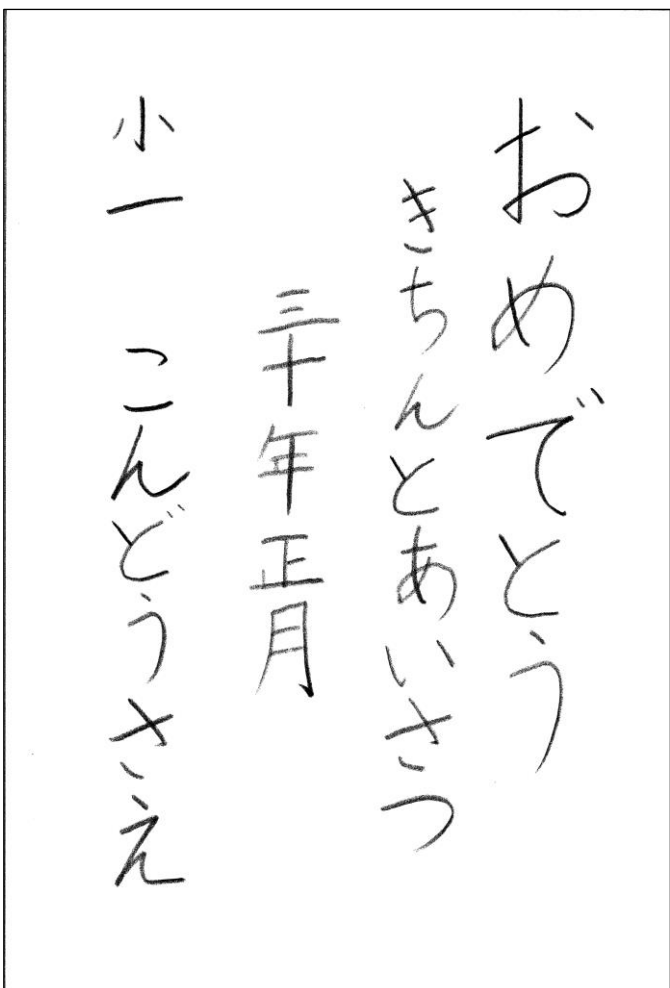 おめでとう
きちんとあいさつ
三十年正月
小一 こんどうさえ